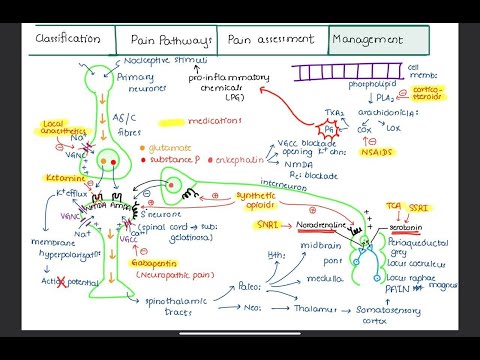 Classification
Pain Pathways
Pain assessment
Management
Nociceptive stimuli
Primary
neurones
pro-inflammatory
chemicals
(PG)
cell
memb:
phospholipid
PLA₂
cortico-
steroids
TXA₂
arachidonic A:
PG
COX
LOX
NSAIDS
Aδ/C
fibres
medications
Local
anaesthetics
Na⁺
VGNC
glutamate
substance P
enkephalin
VGCC blockade
opening K⁺ chn:
NMDA
Rc: blockade
interneuron
Ketamine
K⁺ efflux
NMDA
AMPA
VGNC
Na⁺
Ca²⁺
VGCC
S neurone
(spinal cord → sub:
gelatinosa)
synthetic
opioids
SNRI
Noradrenaline
TCA
SSRI
serotonin
Periaqueductal
grey
Locus coeruleus
Locus raphae
magnus
PAIN
membrane
hyperpolarisatⁿ
Actⁿ potential
Gabapentin
(Neuropathic pain)
spinothalamic
tracts
Bth:
Paleo:
Neo:
midbrain
pons
medulla
Thalamus
Somatosensory
cortex